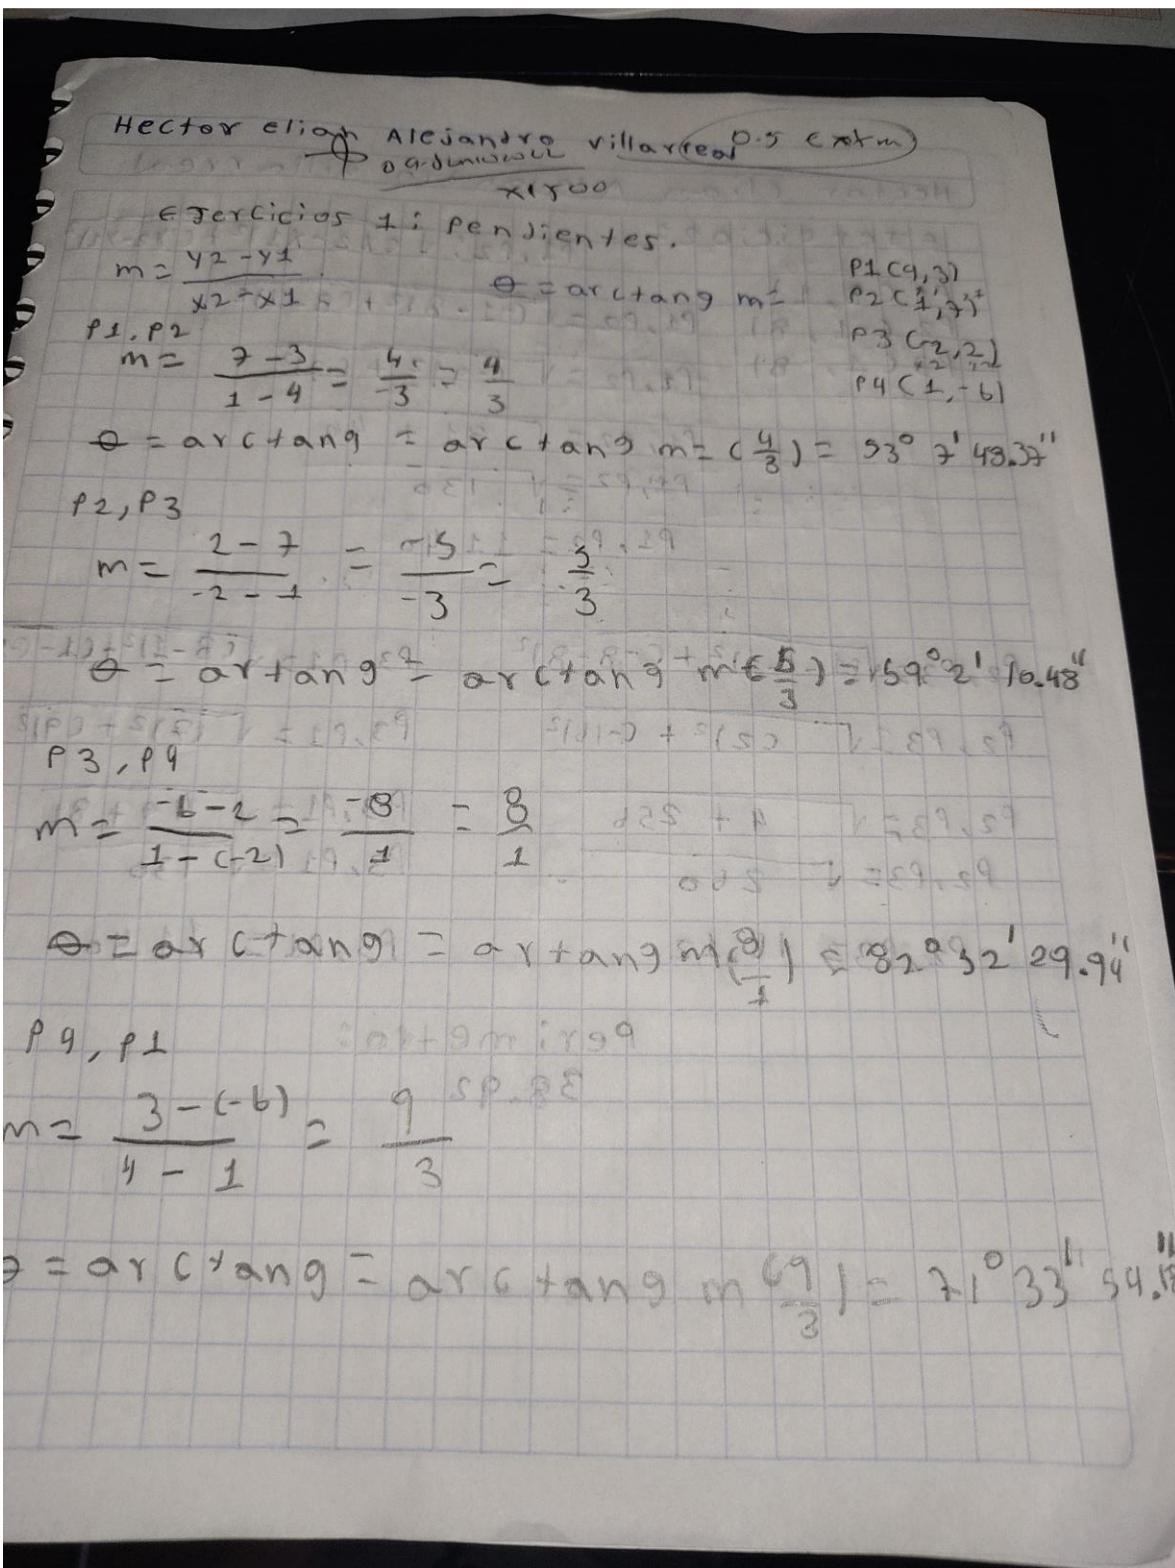 Hector elian Alejandro villarreal 0.5 extra
Ejercicios 1: Pendientes.
m = y2-y1 / x2-x1
θ = arctang m=
P1(4,3)
P2(1,7)
P3(-2,2)
P4(1,-6)
P1, P2
m = 7-3 / 1-4 = 4 / 3 = 4 / 3
θ = arctang = arctang m = (4/3) = 53° 7' 48.37"
P2, P3
m = 2-7 / -2-1 = -5 / -3 = 5 / 3
θ = artang = arctang m (5/3) = 59° 2' 10.48"
P3, P4
m = -6-2 / 1-(-2) = -8 / 1 = 8 / 1
θ = arctang = artang m (8/1) = 82° 52' 29.94"
P4, P1
m = 3-(-6) / 4-1 = 9 / 3
θ = arctang = arctang m (9/3) = 71° 33' 54.